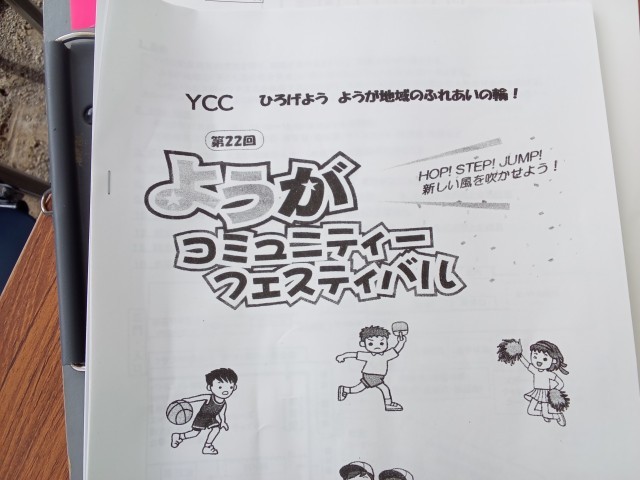 YCC ひろげよう ようが地域のふれあいの輪！
第22回
ようが
HOP! STEP! JUMP!
新しい風を吹かせよう！
コミュニティー
フェスティバル